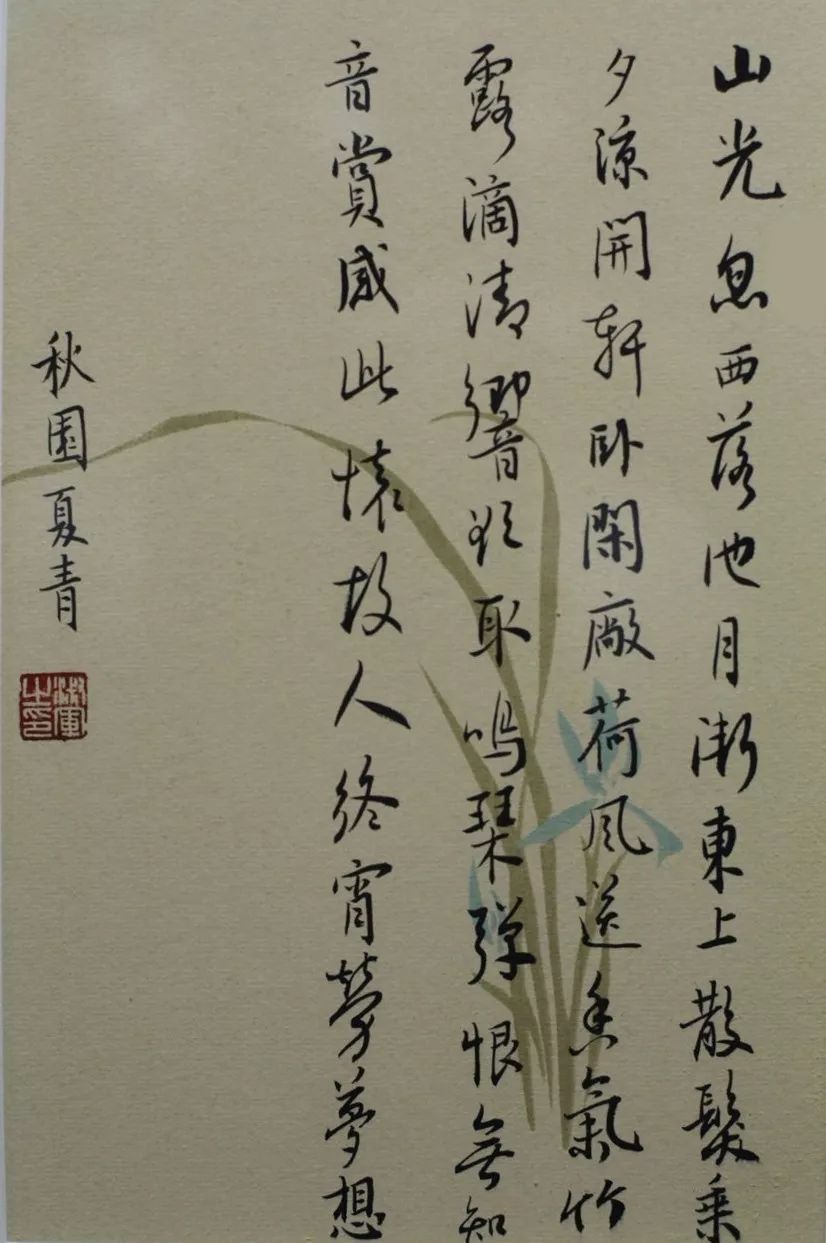 山光忽西落池月漸東上散髮乘
夕涼開軒卧閑廠荷風送香氣竹
露滴清響欲取鳴琴彈恨無知
音賞感此懷故人終宵勞夢想
秋園夏青
之印